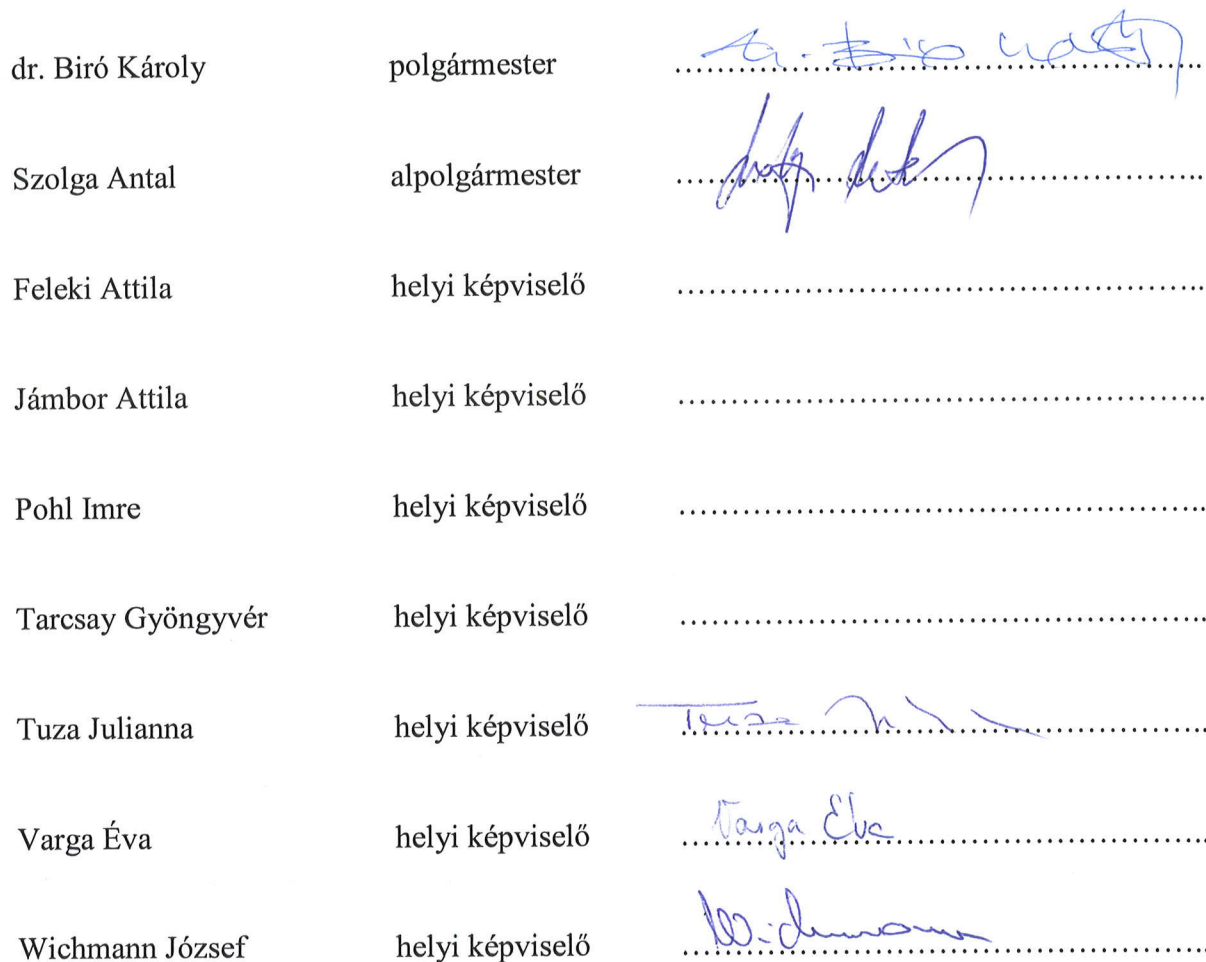 dr. Biró Károly polgármester dr. Biró
Szolga Antal alpolgármester
Feleki Attila helyi képviselő
Jámbor Attila helyi képviselő
Pohl Imre helyi képviselő
Tarcsay Gyöngyvér helyi képviselő
Tuza Julianna helyi képviselő Tuza
Varga Éva helyi képviselő Varga Éva
Wichmann József helyi képviselő Wichmann